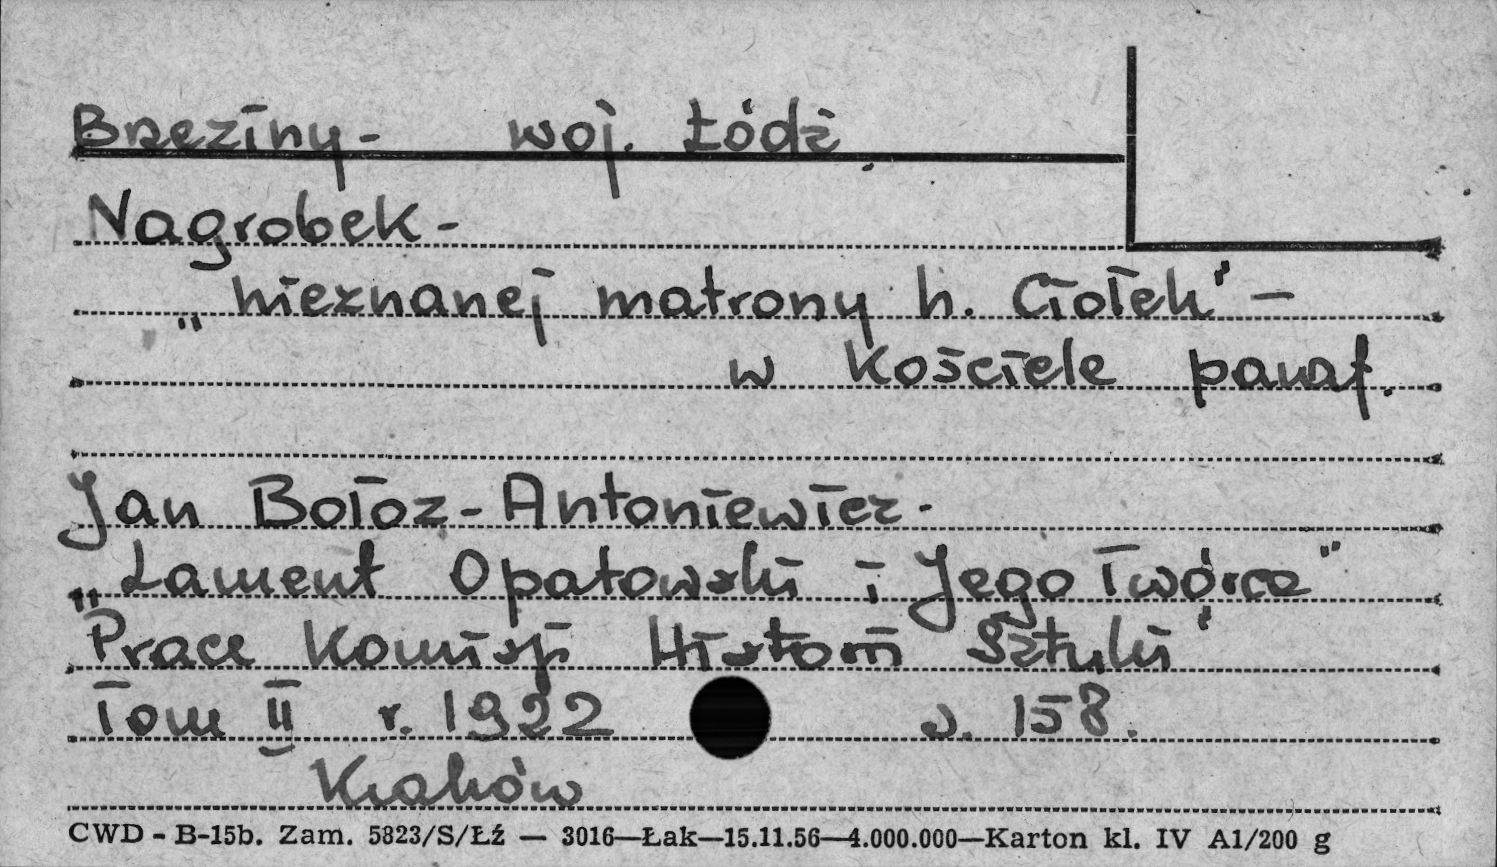 Brzeziny - woj. Łódź
Nagrobek -
„nieznanej matrony h. Ciołek" -
w Kościele paraf.
Jan Bołoz-Antoniewicz -
„Lament Opatowski i Jego Twórca"
Prace Komisji Historii Sztuki
Tom II r. 1922 s. 158.
Kraków
CWD - B-15b. Zam. 5823/S/Łź — 3016—Łak—15.11.56—4.000.000—Karton kl. IV A1/200 g